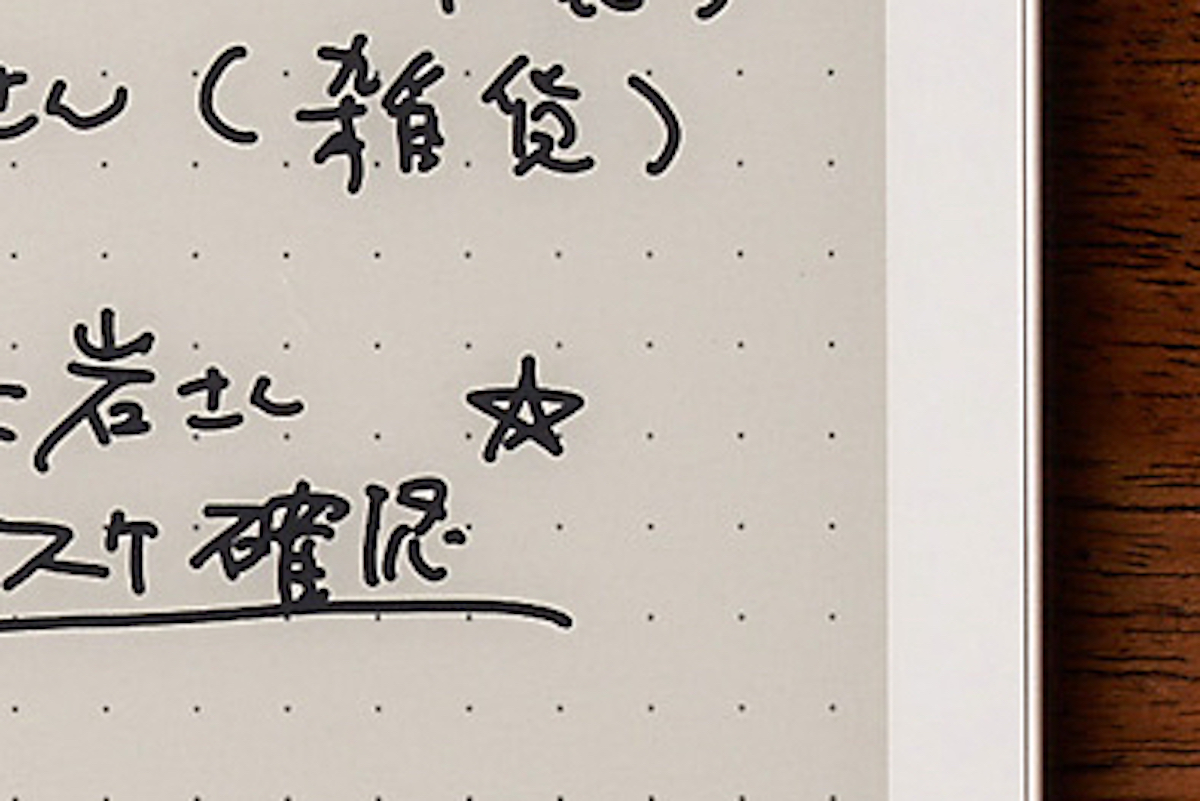 さん（雑貨）
岩さん ☆
スケ確認